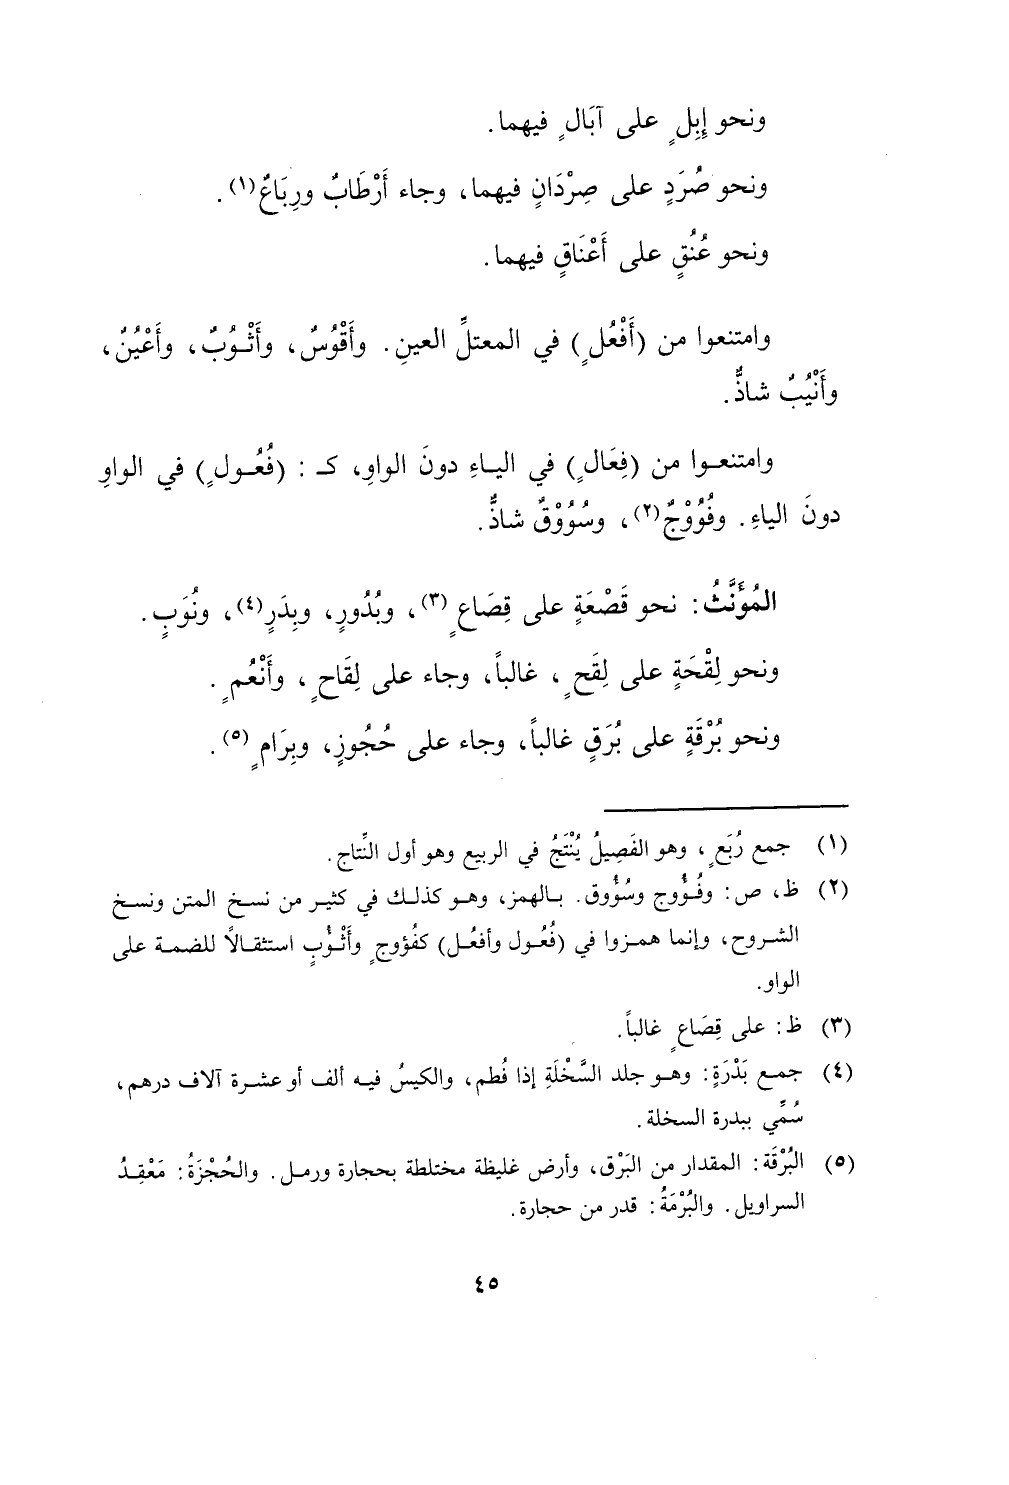 ونحو إِبِلٍ على آبَالٍ فيهما.
ونحو صُرَدٍ على صِرْدَانٍ فيهما، وجاء أَرْطَابٌ ورِبَاعٌ(١).
ونحو عُنُقٍ على أَعْنَاقٍ فيهما.
وامتنعوا من (أَفْعُلٍ) في المعتلِّ العينِ. وأَقْوُسٌ، وأَثْوُبٌ، وأَعْيُنٌ،
وأَنْيُبٌ شاذٌّ.
وامتنعوا من (فِعَالٍ) في الياءِ دونَ الواوِ، كـ : (فُعُولٍ) في الواوِ
دونَ الياءِ. وفُوُوْجٌ(٢)، وسُوُوْقٌ شاذٌّ.
المُؤَنَّثُ: نحو قَصْعَةٍ على قِصَاعٍ(٣)، وبُدُورٍ، وبِدَرٍ(٤)، ونُوَبٍ.
ونحو لِقْحَةٍ على لِقَحٍ، غالباً، وجاء على لِقَاحٍ، وأَنْعُمٍ.
ونحو بُرْقَةٍ على بُرَقٍ غالباً، وجاء على حُجُوزٍ، وبِرَامٍ(٥).
(١) جمع رُبَعٍ، وهو الفَصِيلُ يُنْتَجُ في الربيع وهو أول النِّتاج.
(٢) ظ، ص: وفُؤُوج وسُؤُوق. بالهمز، وهو كذلك في كثير من نسخ المتن ونسخ
الشروح، وإنما همزوا في (فُعُول وأفعُل) كفُؤوجٍ وأَثْؤُبٍ استثقالاً للضمة على
الواو.
(٣) ظ: على قِصَاعٍ غالباً.
(٤) جمع بَدْرَةٍ: وهو جلد السَّخْلَةِ إذا فُطم، والكيسُ فيه ألف أو عشرة آلاف درهم،
سُمِّي ببدرة السخلة.
(٥) البُرْقَة: المقدار من البَرْق، وأرض غليظة مختلطة بحجارة ورمل. والحُجْزَةُ: مَعْقِدُ
السراويل. والبُرْمَةُ: قدر من حجارة.
٤٥